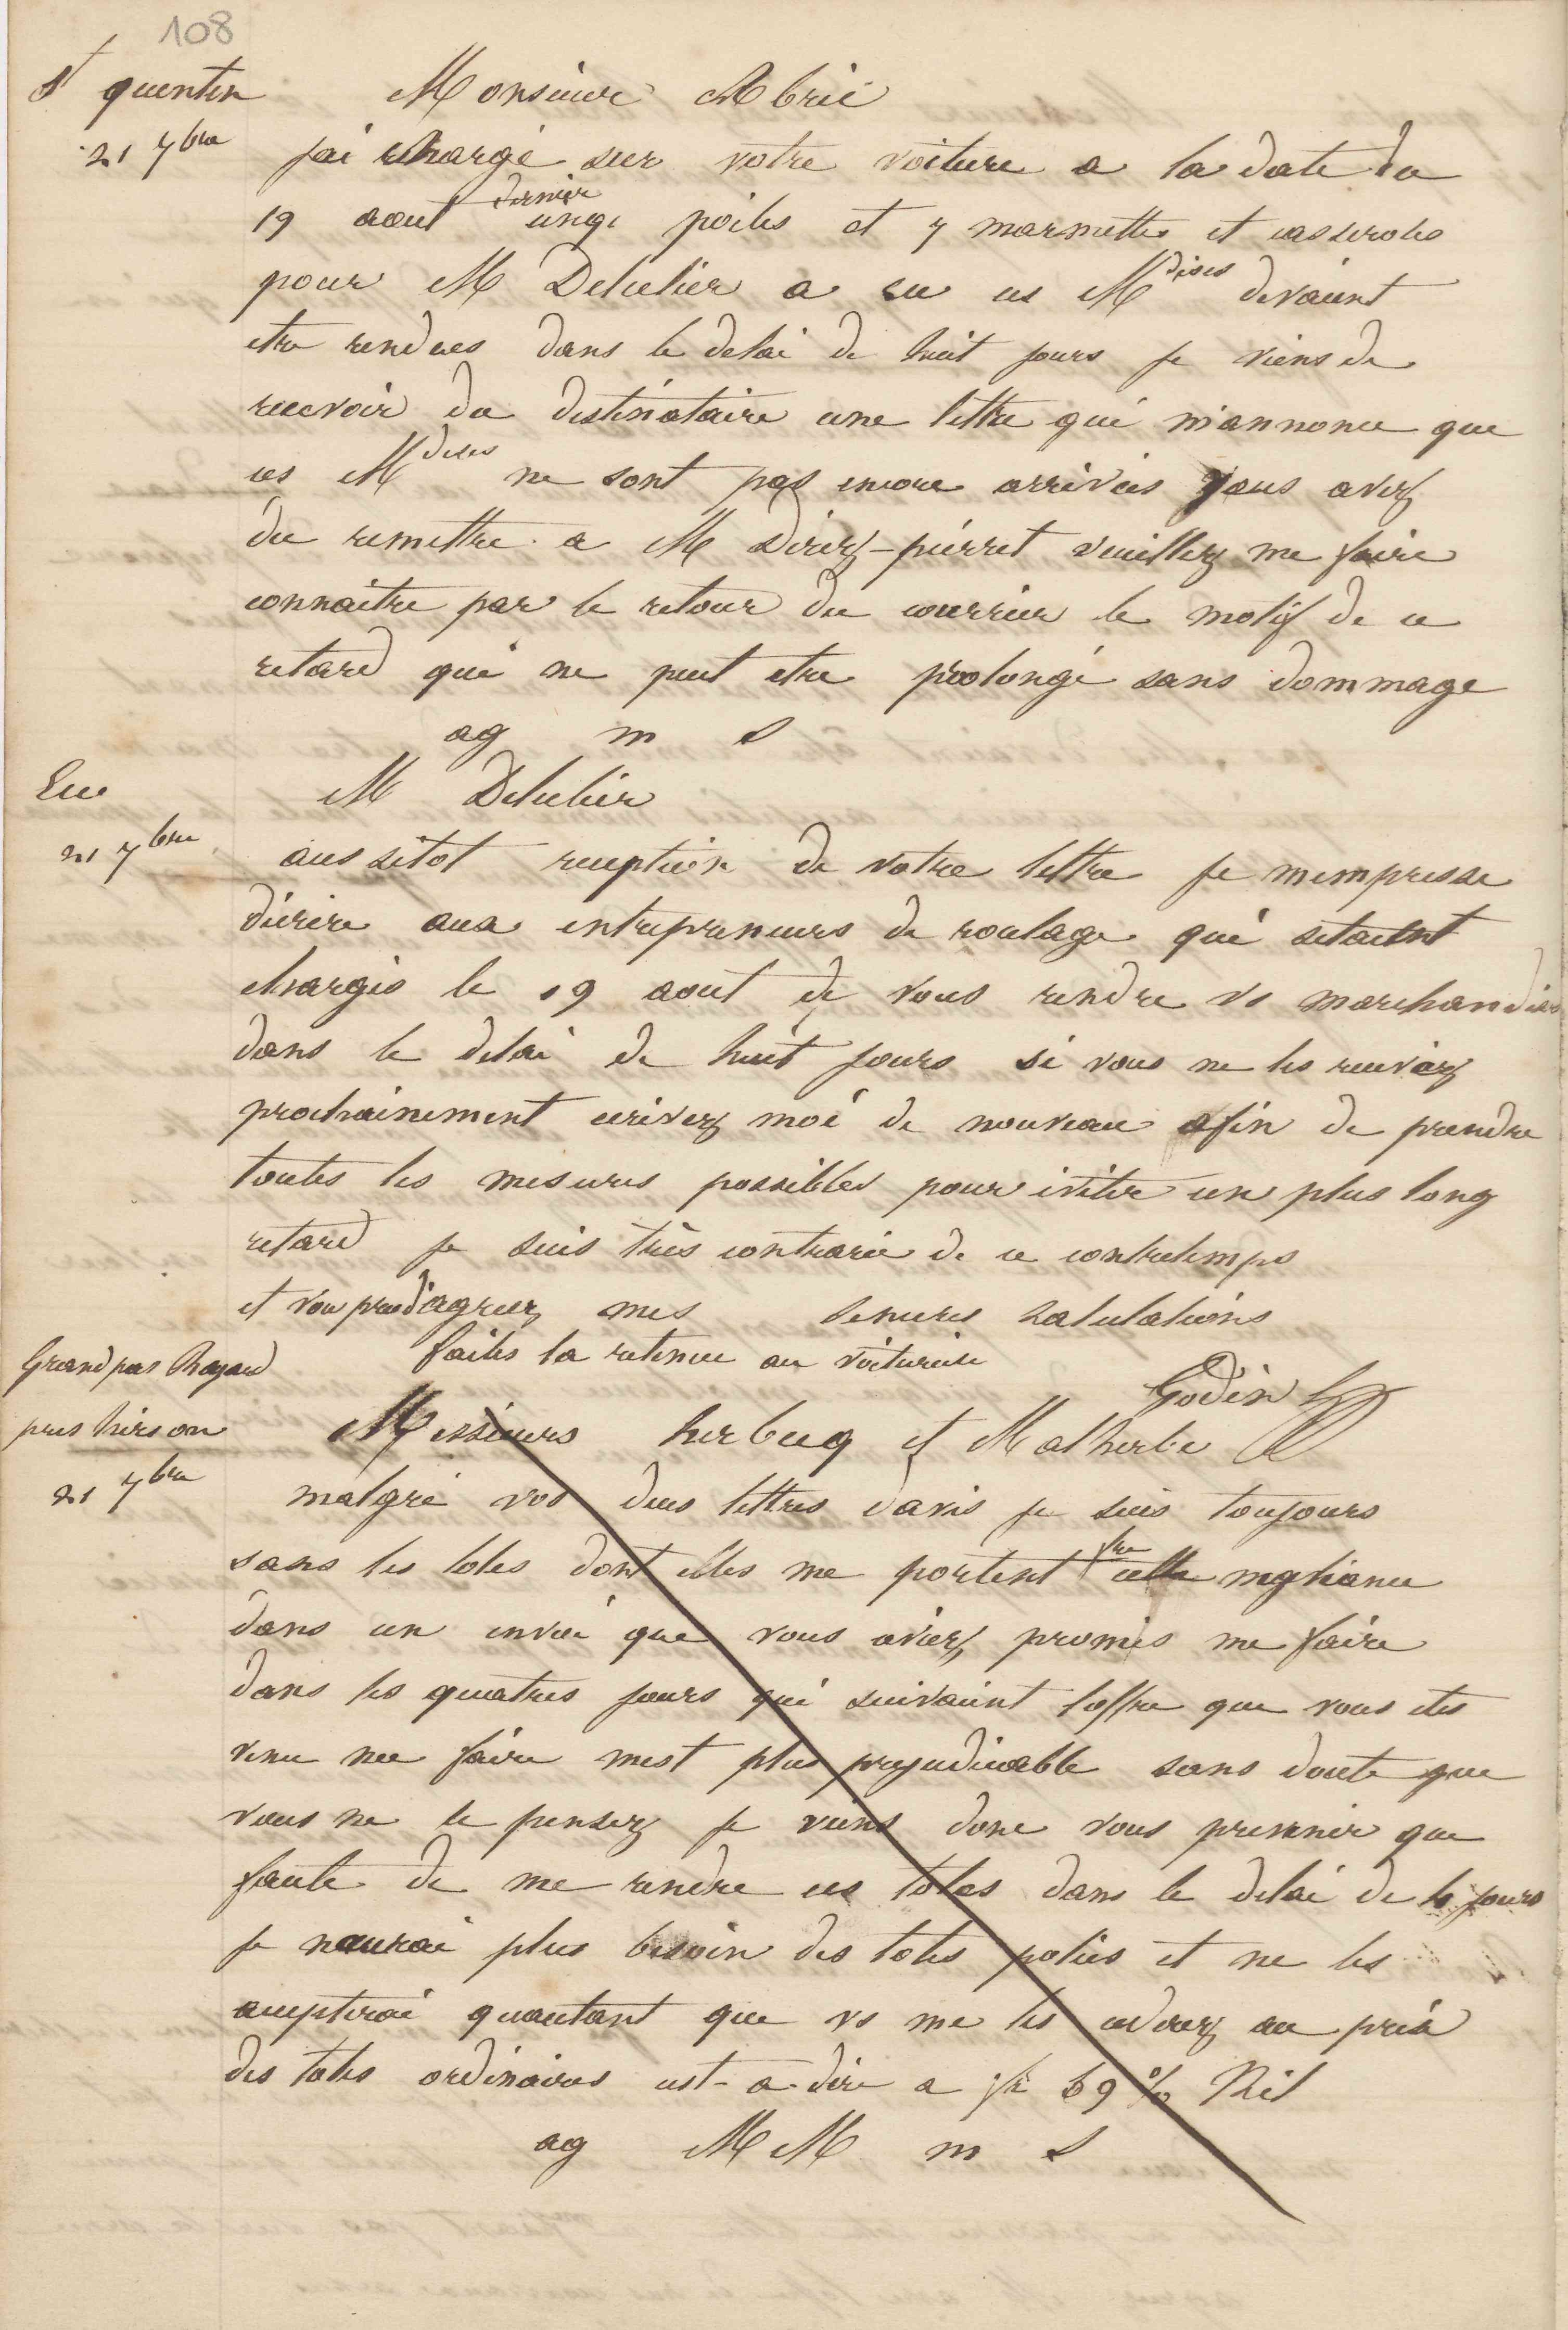 108
St quentin
21 7bre
Monsieur Abric
jai chargé sur votre voiture a la date du
19 aout dernier onze poiles et 7 marmettes et casseroles
pour M Delulier a eu ces Mdises devaient
etre rendues dans le delai de huit jours je viens de
recevoir du destinataire une lettre qui mannonce que
ces Mdises ne sont pas encore arrivées vous avez
du remettre a M Deriez-pierret veuillez me faire
connaitre par le retour du courrier le motif de ce
retard qui ne peut etre prolongé sans dommage
ag m s
Eu
21 7bre
M Delulier
aussitot reception de votre lettre je mempresse
décrire aux entrepreneurs de roulage qui setaient
chargés le 19 aout de vous rendre vs marchandises
dans le delai de huit jours si vous ne les receviez
prochainement ecrivez moi de nouveau afin de prendre
toutes les mesures possibles pour eviter un plus long
retard je suis très contrarié de ce contretemps
et vous prie d'agreer mes sinceres salutations
faites la retenue au voiturier
Godin
Grand pas Bayard
pres hirson
21 7bre
Messieurs herbecq et Malherbe
malgré vos deux lettres davis je suis toujours
sans les toles dont elles me portent fre cette negliance
dans un envoi que vous aviez promis me faire
dans les quatres jours qui suivaient loffre que vous etes
venu me faire mest plus prejudiciable sans doute que
vous ne le pensez je viens donc vous prevenir que
faute de me rendre ces toles dans le delai de 10 jours
je naurai plus besoin des toles polies et ne les
accepterai quautant que vs me les cederez au prix
des toles ordinaires cest-a-dire a fr 69 % Kil
ag MM m s